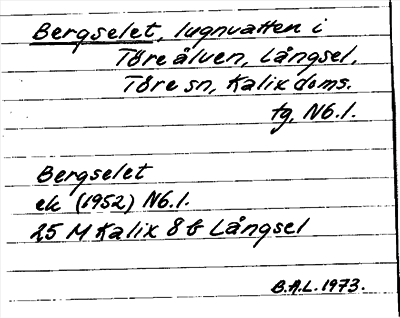 Bergselet, lugnvatten i
Töre älven, Långsel,
Töre sn, Kalix doms.
tg, Nb.l.
Bergselet
ek (1952) Nb.l.
25 M Kalix 8 b Långsel
B.A.L. 1973.